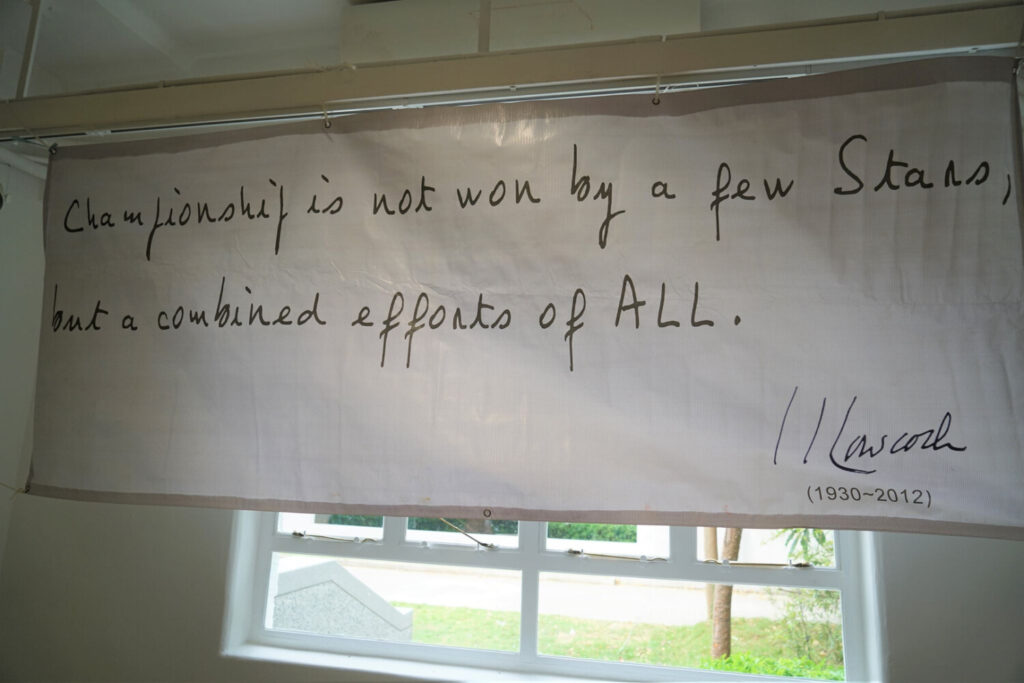 Championship is not won by a few Stars,
but a combined efforts of ALL.
(1930~2012)